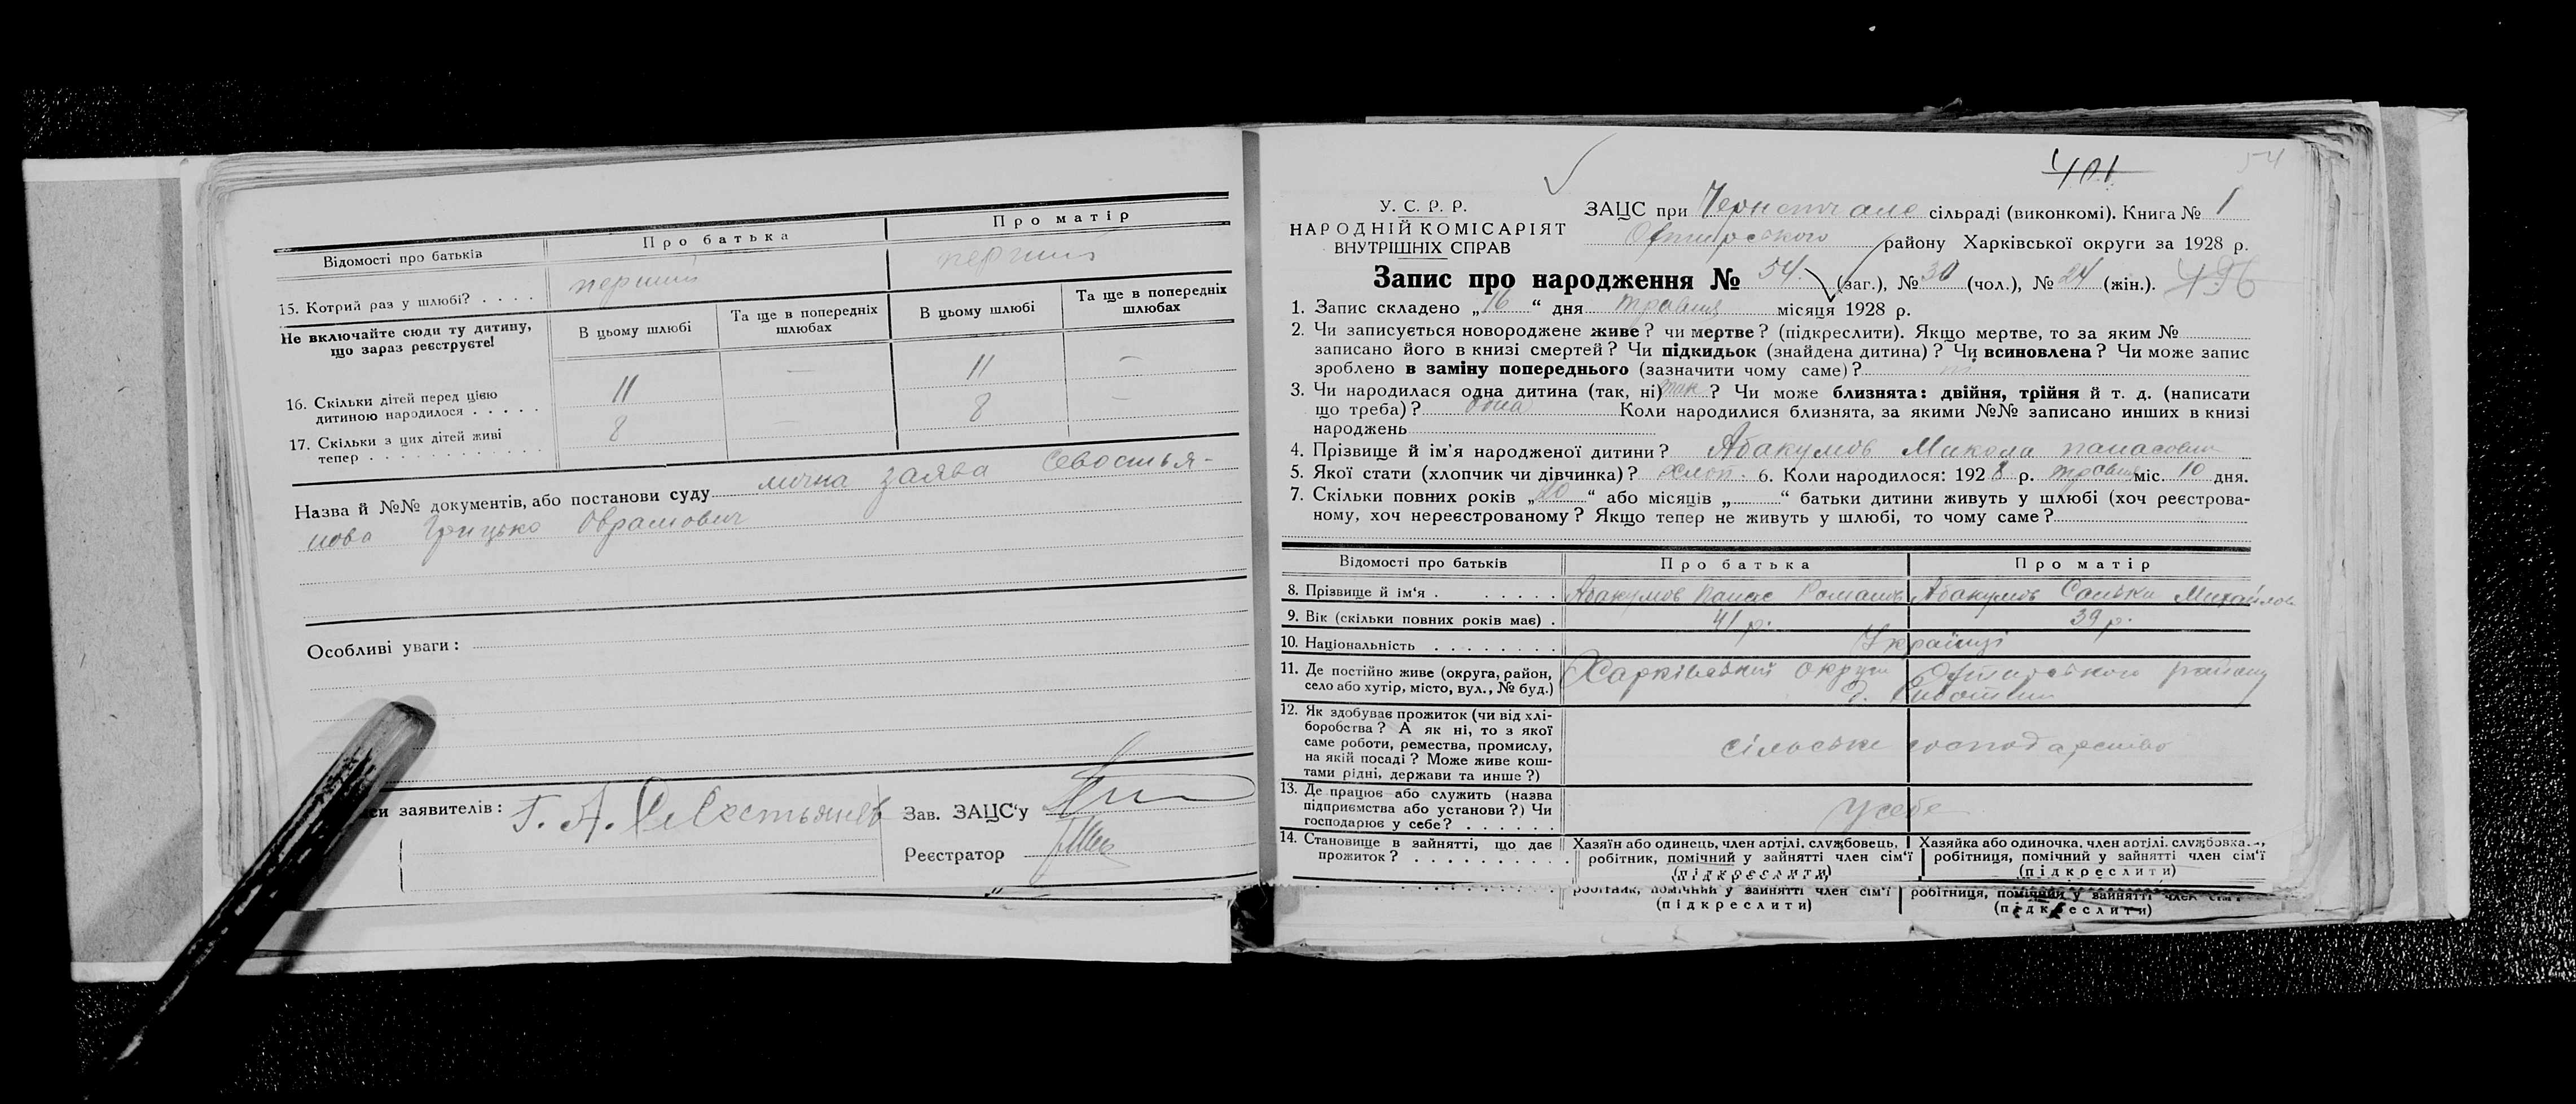 Відомості про батьків
Про батька
Про матір
15. Котрий раз у шлюбі? . . . .
перший
перший
Не включайте сюди ту дитину, що зараз реєструєте!
В цьому шлюбі
Та ще в попередніх шлюбах
В цьому шлюбі
Та ще в попередніх шлюбах
16. Скільки дітей перед цією
дитиною народилося . . . . .
11
—
11
—
17. Скільки з цих дітей живі
тепер . . . . . . . . . . . .
8
—
8
—
Назва й №№ документів, або постанови суду лична заява Севостья-
нова Грицько Оврамович
Особливі уваги:
си заявителів: Г. А. Севостьянов
Зав. ЗАЦС'у
Реєстратор
401
54
У. С. Р. Р.
НАРОДНІЙ КОМІСАРІЯТ
ВНУТРІШНІХ СПРАВ
ЗАЦС при сільраді (виконкомі). Книга № 1
району Харківської округи за 1928 р.
Запис про народження № 54. (заг.), № 30 (чол.), № 24 (жін.). 496
1. Запис складено „16“ дня травня місяця 1928 р.
2. Чи записується новороджене живе? чи мертве? (підкреслити). Якщо мертве, то за яким №
записано його в книзі смертей? Чи підкидьок (знайдена дитина)? Чи всиновлена? Чи може запис
зроблено в заміну попереднього (зазначити чому саме)? ні
3. Чи народилася одна дитина (так, ні) так ? Чи може близнята: двійня, трійня й т. д. (написати
що треба)? одна Коли народилися близнята, за якими №№ записано инших в книзі
народжень
4. Прізвище й ім'я народженої дитини? Абакумов Микола панасович
5. Якої стати (хлопчик чи дівчинка)? хлоп. 6. Коли народилося: 1928 р. травня міс. 10 дня.
7. Скільки повних років „20“ або місяців „ “ батьки дитини живуть у шлюбі (хоч реєстрова-
ному, хоч нереєстрованому? Якщо тепер не живуть у шлюбі, то чому саме?
Відомості про батьків
Про батька
Про матір
8. Прізвище й ім'я . . . . . .
Абакумов Панас Романов
Абакумов Санька Михайлов
9. Вік (скільки повних років має) .
41 р.
39 р.
10. Національність . . . . . . . .
Українці
11. Де постійно живе (округа, район,
село або хутір, місто, вул., № буд.)
Харківський округи району
12. Як здобуває прожиток (чи від хлі-
боробства? А як ні, то з якої
саме роботи, ремества, промислу,
на якій посаді? Може живе кош-
тами рідні, держави та инше?)
сільське господарство
13. Де працює або служить (назва
підприємства або установи?) Чи
господарює у себе? . . . . . .
у себе
14. Становище в зайнятті, що дає
прожиток? . . . . . . . . . .
Хазяїн або одинець, член артілі, службовець,
робітник, помічний у зайнятті член сім'ї
(підкреслити)
Хазяйка або одиночка, член артілі, службовка,
робітниця, помічний у зайнятті член сім'ї
(підкреслити)
робітник, помічний у зайнятті член сім'ї
(підкреслити)
робітниця, помічний у зайнятті член сім'ї
(підкреслити)